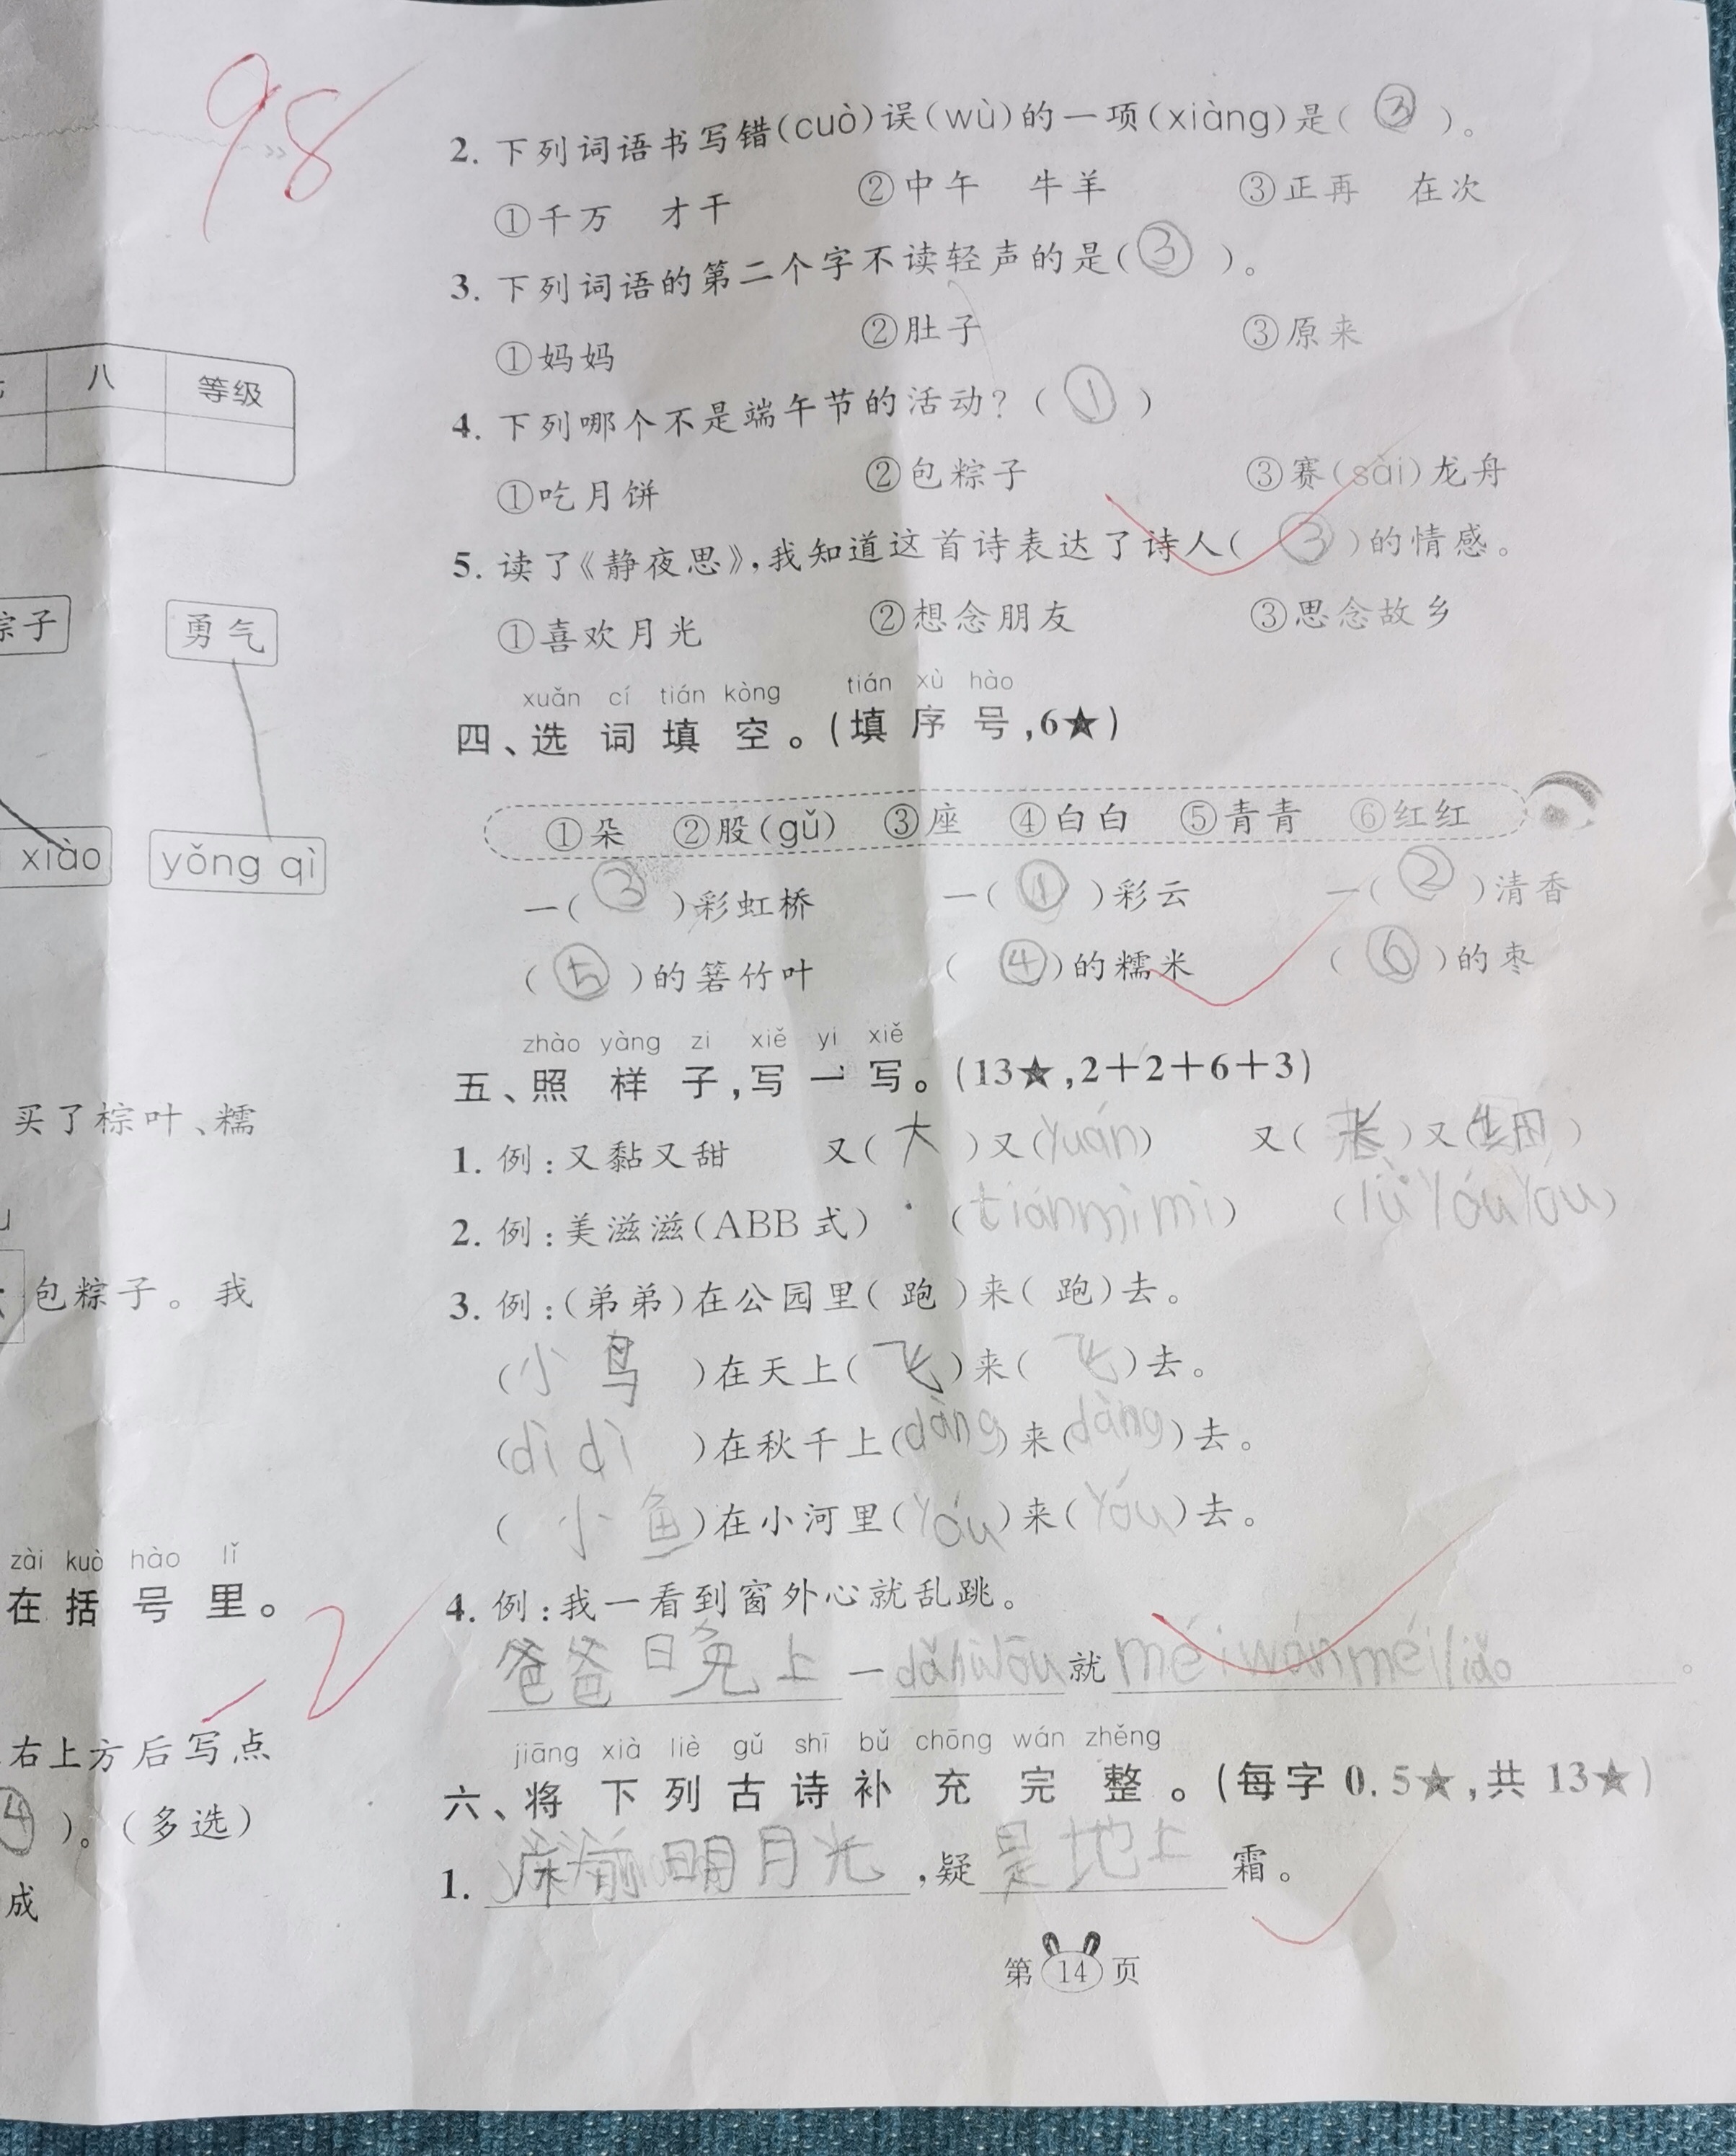 98
八 等级
宗子 勇气
xiào yǒng qì
买了棕叶、糯
包粽子。我
zài kuò hào lǐ
在括号里。
2
右上方后写点
④ )。(多选)
成
2. 下列词语书写错(cuò)误(wù)的一项(xiàng)是( ③ )。
①千万 才干 ②中午 牛羊 ③正再 在次
3. 下列词语的第二个字不读轻声的是( ③ )。
①妈妈 ②肚子 ③原来
4. 下列哪个不是端午节的活动?( ① )
①吃月饼 ②包粽子 ③赛(sài)龙舟
5. 读了《静夜思》,我知道这首诗表达了诗人( ③ )的情感。
①喜欢月光 ②想念朋友 ③思念故乡
xuǎn cí tián kòng tián xù hào
四、选词填空。(填序号,6★)
①朵 ②股(gǔ) ③座 ④白白 ⑤青青 ⑥红红
一( ③ )彩虹桥 一( ① )彩云 一( ② )清香
( ⑤ )的箬竹叶 ( ④ )的糯米 ( ⑥ )的枣
zhào yàng zi xiě yi xiě
五、照样子,写一写。(13★,2+2+6+3)
1. 例:又黏又甜 又( 大 )又(yuán) 又( 长 )又(细)
2. 例:美滋滋(ABB式) (tiánmìmì) (lǜyóuyóu)
3. 例:(弟弟)在公园里( 跑 )来( 跑 )去。
(小鸟)在天上(飞)来(飞)去。
(dì dì)在秋千上(dàng)来(dàng)去。
(小鱼)在小河里(yóu)来(yóu)去。
4. 例:我一看到窗外心就乱跳。
爸爸晚上一dǎhūlōu就méiwánméiliǎo。
jiāng xià liè gǔ shī bǔ chōng wán zhěng
六、将下列古诗补充完整。(每字0.5★,共13★)
1. 床前明月光,疑是地上霜。
第14页